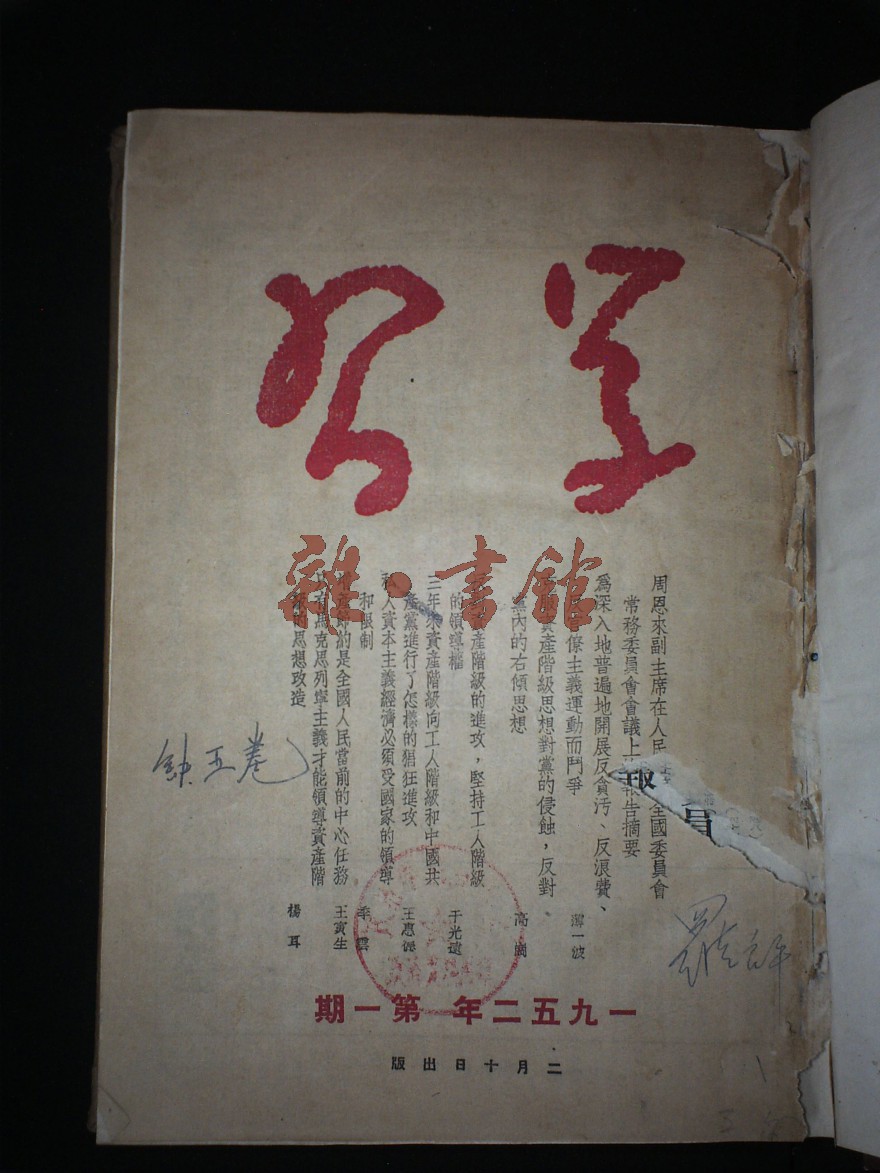 学习
雜·書館
周恩來副主席在人民全國委員會
常務委員會會議上報告摘要
為深入地普遍地開展反貪汚、反浪費、
僚主義運動而鬥爭 薄一波
產階級思想對黨的侵蝕，反對
黨內的右傾思想 高崗
產階級的進攻，堅持工人階級
的領導權 于光遠
三年來資產階級向工人階級和中國共
產黨進行了怎樣的猖狂進攻 王惠德
私人資本主義經濟必須受國家的領導
和限制 季雲
產節約是全國人民當前的中心任務 王寅生
有馬克思列寧主義才能領導資產階
的思想改造 楊耳
員
一九五二年 第一期
二月十日出版